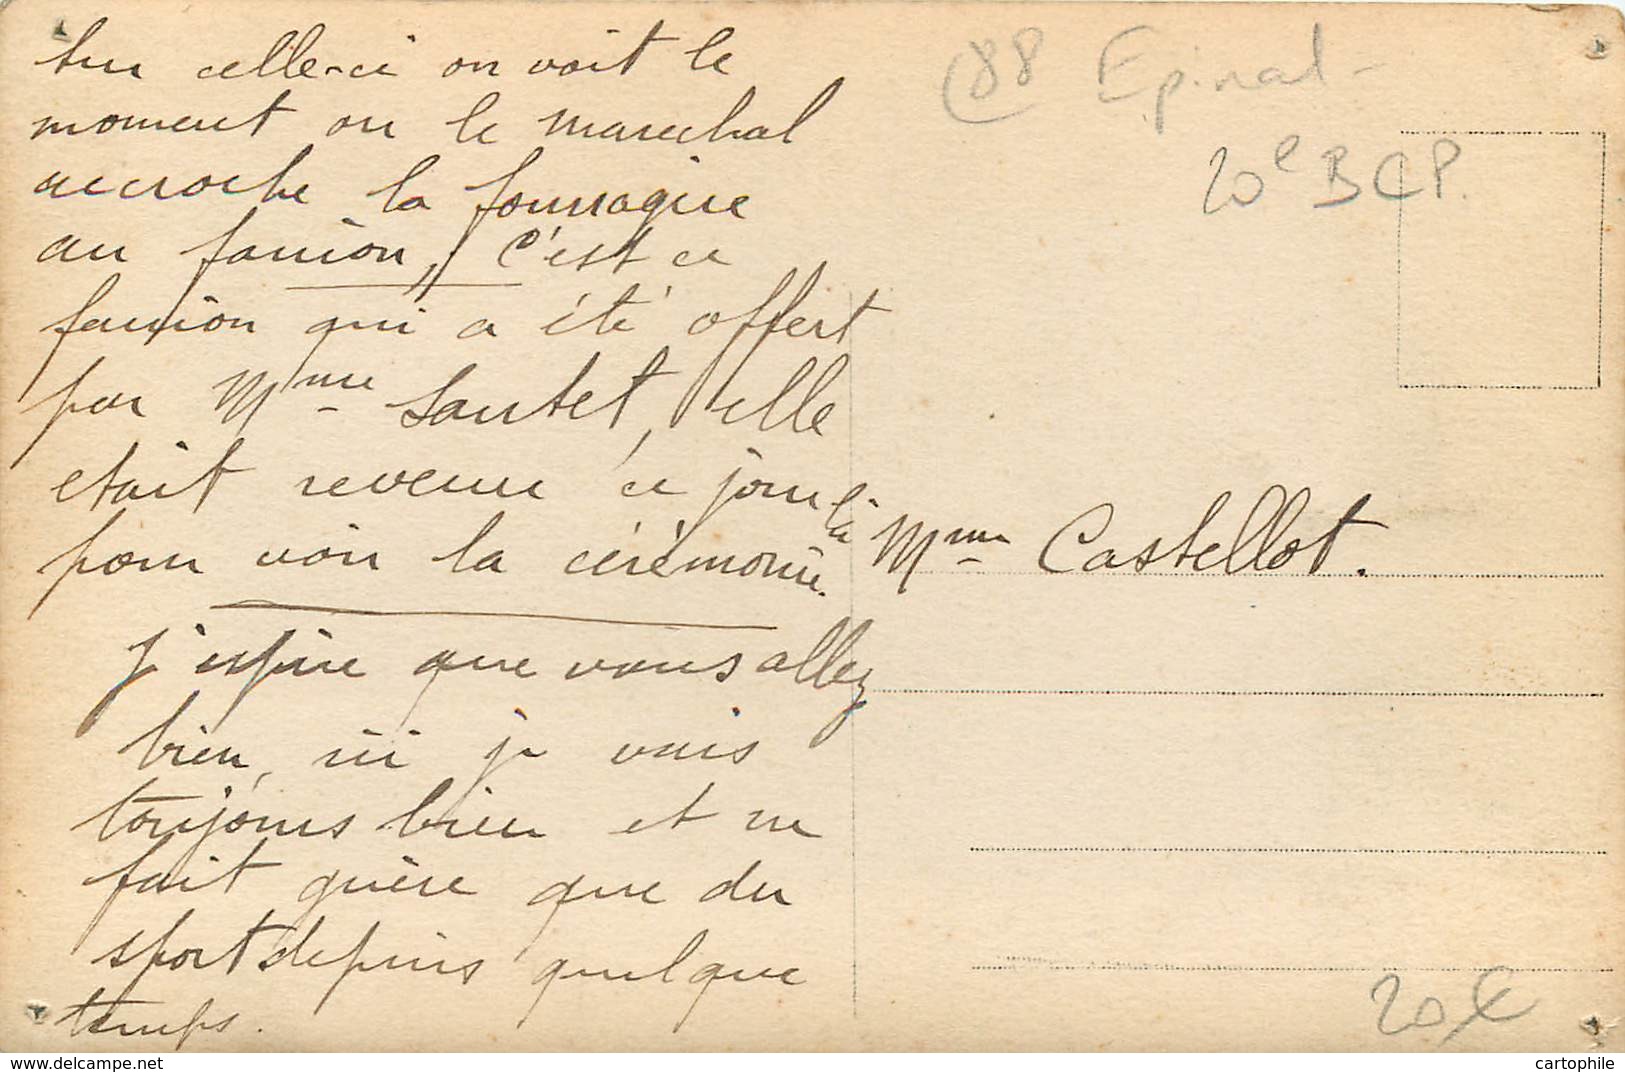 Sur celle-ci on voit le
moment ou le marechal
accroche la fourragère
au fanion, c'est ce
fanion qui a été offert
par Mme Sautet, elle
etait revenue ce jour là
pour voir la cérémonie.
j'espère que vous allez
bien, ici je vais
toujours bien et ne
fait guère que du
sport depuis quelque
temps.
(88 Epinal -
20e BCP.
Mme Castellot.
20€
cartophile